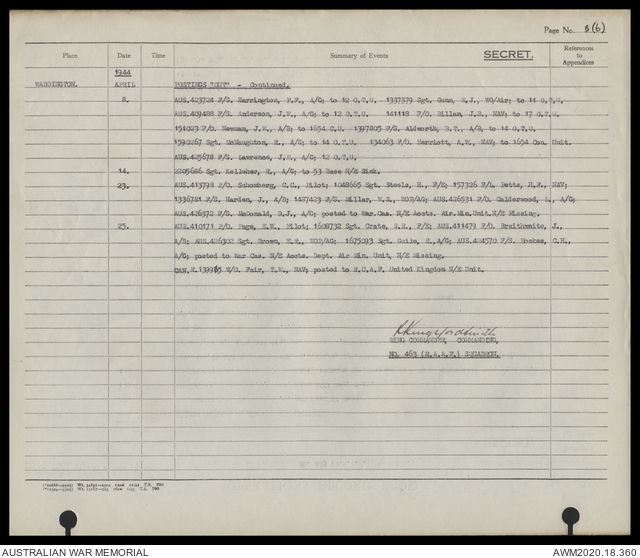 Page No. 5(6)
Place Date Time Summary of Events SECRET. References to Appendices
1944
WADDINGTON. APRIL POSTINGS "OUT" - Continued.
8. AUS.423724 F/S. Harrington, F.F., A/G; to 12 O.T.U. - 1337379 Sgt. Gunn, R.J., WO/Air; to 11 O.T.U.
AUS.409488 F/S. Anderson, J.W., A/G; to 12 O.T.U. 141118 F/O. Dillam, J.R., NAV; to 17 O.T.U.
151023 F/O. Newman, J.W., A/B; to 1654 C.U. 1397805 F/S. Aldworth, D.T., A/B, to 14 O.T.U.
1590267 Sgt. McNaughton, R., A/G; to 14 O.T.U. 134063 F/O. Herriott, A.W., NAV; to 1654 Con. Unit.
AUS.425678 F/S. Lawrence, J.P., A/G; 12 O.T.U.
14. 2205686 Sgt. Kelleher, R., A/G; to 53 Base N/E Sick.
23. AUS.413798 P/O. Schomberg, C.C., Pilot; 1048665 Sgt. Steels, H., F/E; 157326 F/L. Betts, H.F., NAV;
1336781 F/S. Harden, J., A/B; 1487423 F/S. Millar, W.R., WOP/AG; AUS.426531 F/O. Calderwood, L., A/G;
AUS.426372 F/S. McDonald, D.J., A/G; posted to War.Cas. N/E Accts. Air.Min.Unit,N/E Missing.
25. AUS.410171 F/O. Page, E.W., Pilot; 1608732 Sgt. Crate, S.R., F/E; AUS.411479 F/O. Braithwaite, J.,
A/B; AUS.426302 Sgt. Brown, E.R., WOP/AG; 1675093 Sgt. Guile, R., A/G; AUS.424570 F/S. Noakes, C.H.,
A/G; posted to War Cas. N/E Accts. Dept. Air Min. Unit, N/E Missing.
CAN.R.139915 W/O. Fair, T.W., NAV; posted to R.C.A.F. United Kingdom N/E Unit.
WING COMMANDER, COMMANDING,
NO. 463 (R.A.A.F.) SQUADRON.
AUSTRALIAN WAR MEMORIAL AWM2020.18.360